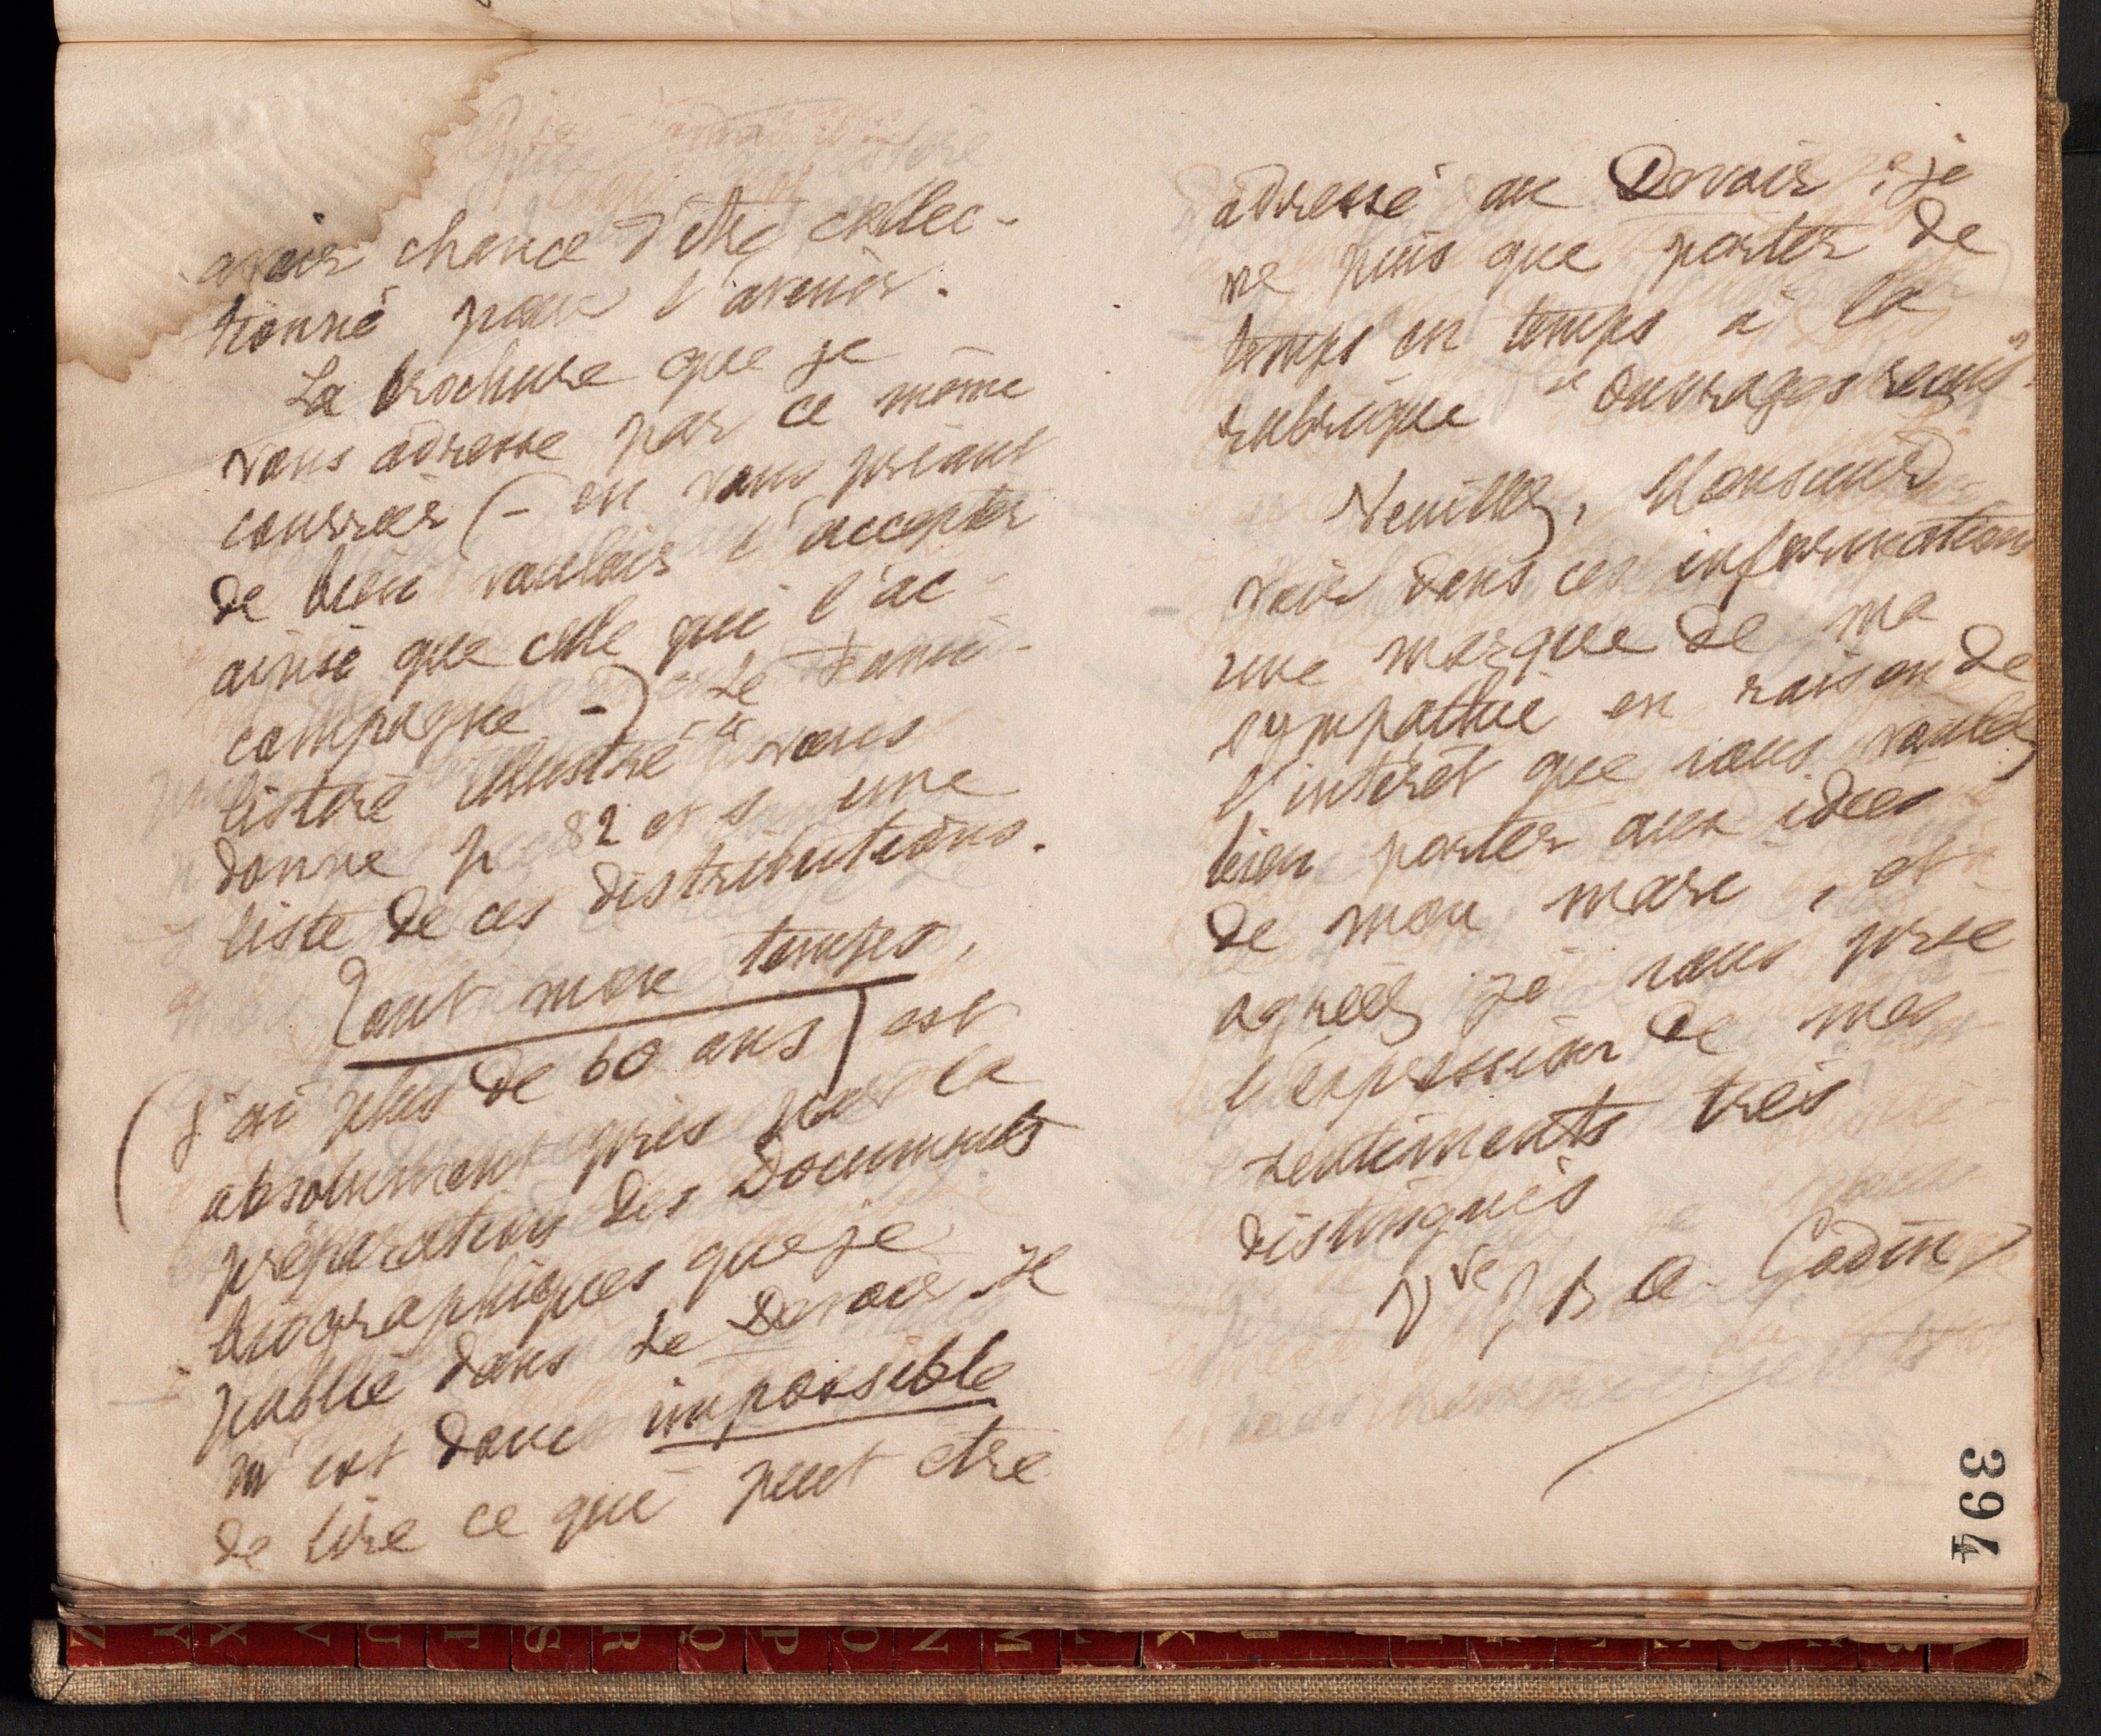 avoir chance d'être collec-
tionné pour l'avenir.
La brochure que je
vous adresse par ce même
courrier (- en vous priant
de bien vouloir l'accepter
ainsi que celle qui l'ac-
compagne -) "Le Fami-
listère illustré" vous
donne p 82 et s une
liste de ces distributions.
Tout mon temps,
(J'ai plus de 60 ans) est
absolument pris par la
préparation des Documents
biographiques que je
publie dans Le Devoir. Il
m'est donc impossible
de lire ce qui peut être
adressé au Devoir; je
ne puis que porter de
temps en temps à la
rubrique "Ouvrages reçus".
Veuillez, Monsieur
voir dans ces informations
une marque de ma
sympathie en raison de
l'intérêt que vous voulez
bien porter aux idées
de mon mari, et
agréez je vous prie
l'expression de mes
sentiments très
distingués
Vve J B A. Godin
394
Z Y X V U T S R Q P O N M L K